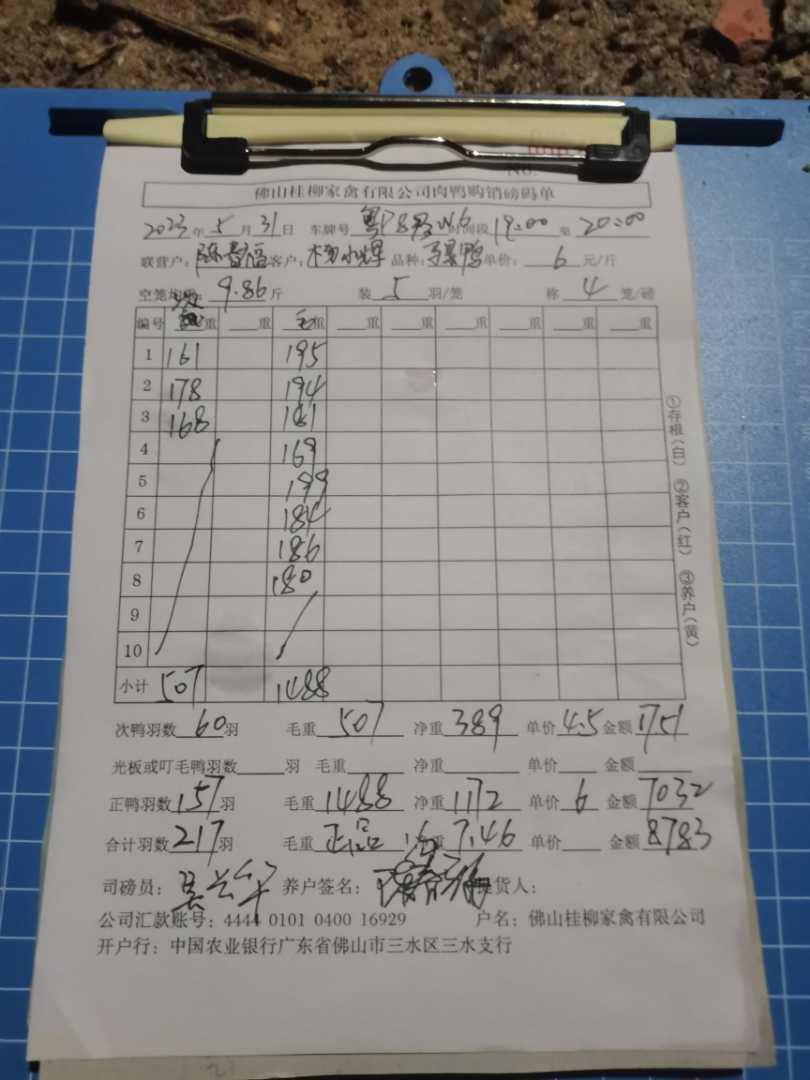 No.
佛山桂柳家禽有限公司肉鸭购销磅码单
2023年5月31日 车牌号 粤 时间段 19:00 至 20:00
联营户: 客户: 品种: 鸭 单价: 6 元/斤
空笼均重: 9.86 斤 装 5 羽/笼 称 4 笼/磅
编号 次重 重 毛重 重 重 重 重 重
1 161 195
2 178 194
3 168 181
4 169
5 199
6 184
7 186
8 180
9
10
小计 507 1488
次鸭羽数 60 羽 毛重 507 净重 389 单价 4.5 金额 1751
光板或叮毛鸭羽数 羽 毛重 净重 单价 金额
正鸭羽数 157 羽 毛重 1488 净重 1172 单价 6 金额 7032
合计羽数 217 羽 毛重 正品 均重 7.46 单价 金额 8783
司磅员: 养户签名: 提货人:
公司汇款账号: 4444 0101 0400 16929 户名: 佛山桂柳家禽有限公司
开户行: 中国农业银行广东省佛山市三水区三水支行
①存根(白) ②客户(红) ③养户(黄)